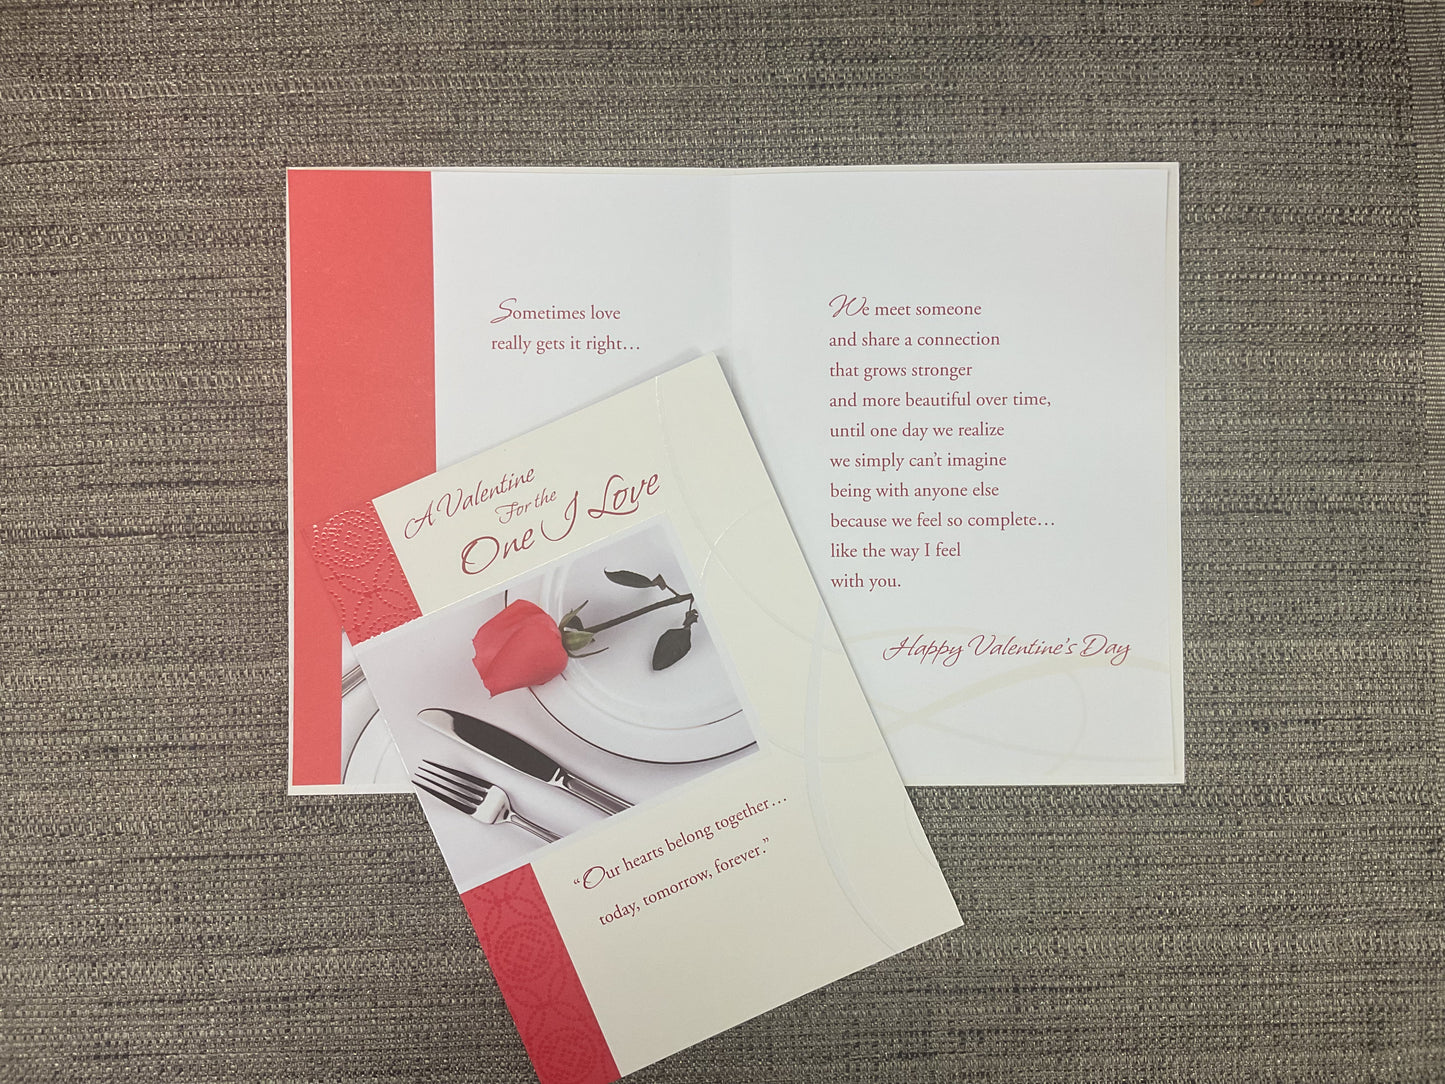 Sometimes love
really gets it right…
We meet someone
and share a connection
that grows stronger
and more beautiful over time,
until one day we realize
we simply can’t imagine
being with anyone else
because we feel so complete…
like the way I feel
with you.
Happy Valentine’s Day
A Valentine
For the
One I Love
“Our hearts belong together…
today, tomorrow, forever.”